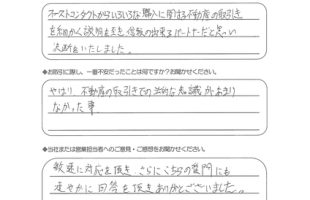 ファーストコンタクトからいろいろな購入に関する不動産の取引き
を細かく説明を頂き、信頼の出来るパートナーだと思い
決断をいたしました。
◆お取引に際し、一番不安だったことは何ですか？お聞かせください。
やはり、不動産の取引きでの法的な知識があまり
なかった事
◆当社または営業担当者へのご意見・ご感想をお聞かせください。
敏速に対応を頂き、さらにこちらの質問にも
速やかに回答を頂きありがとうございました。